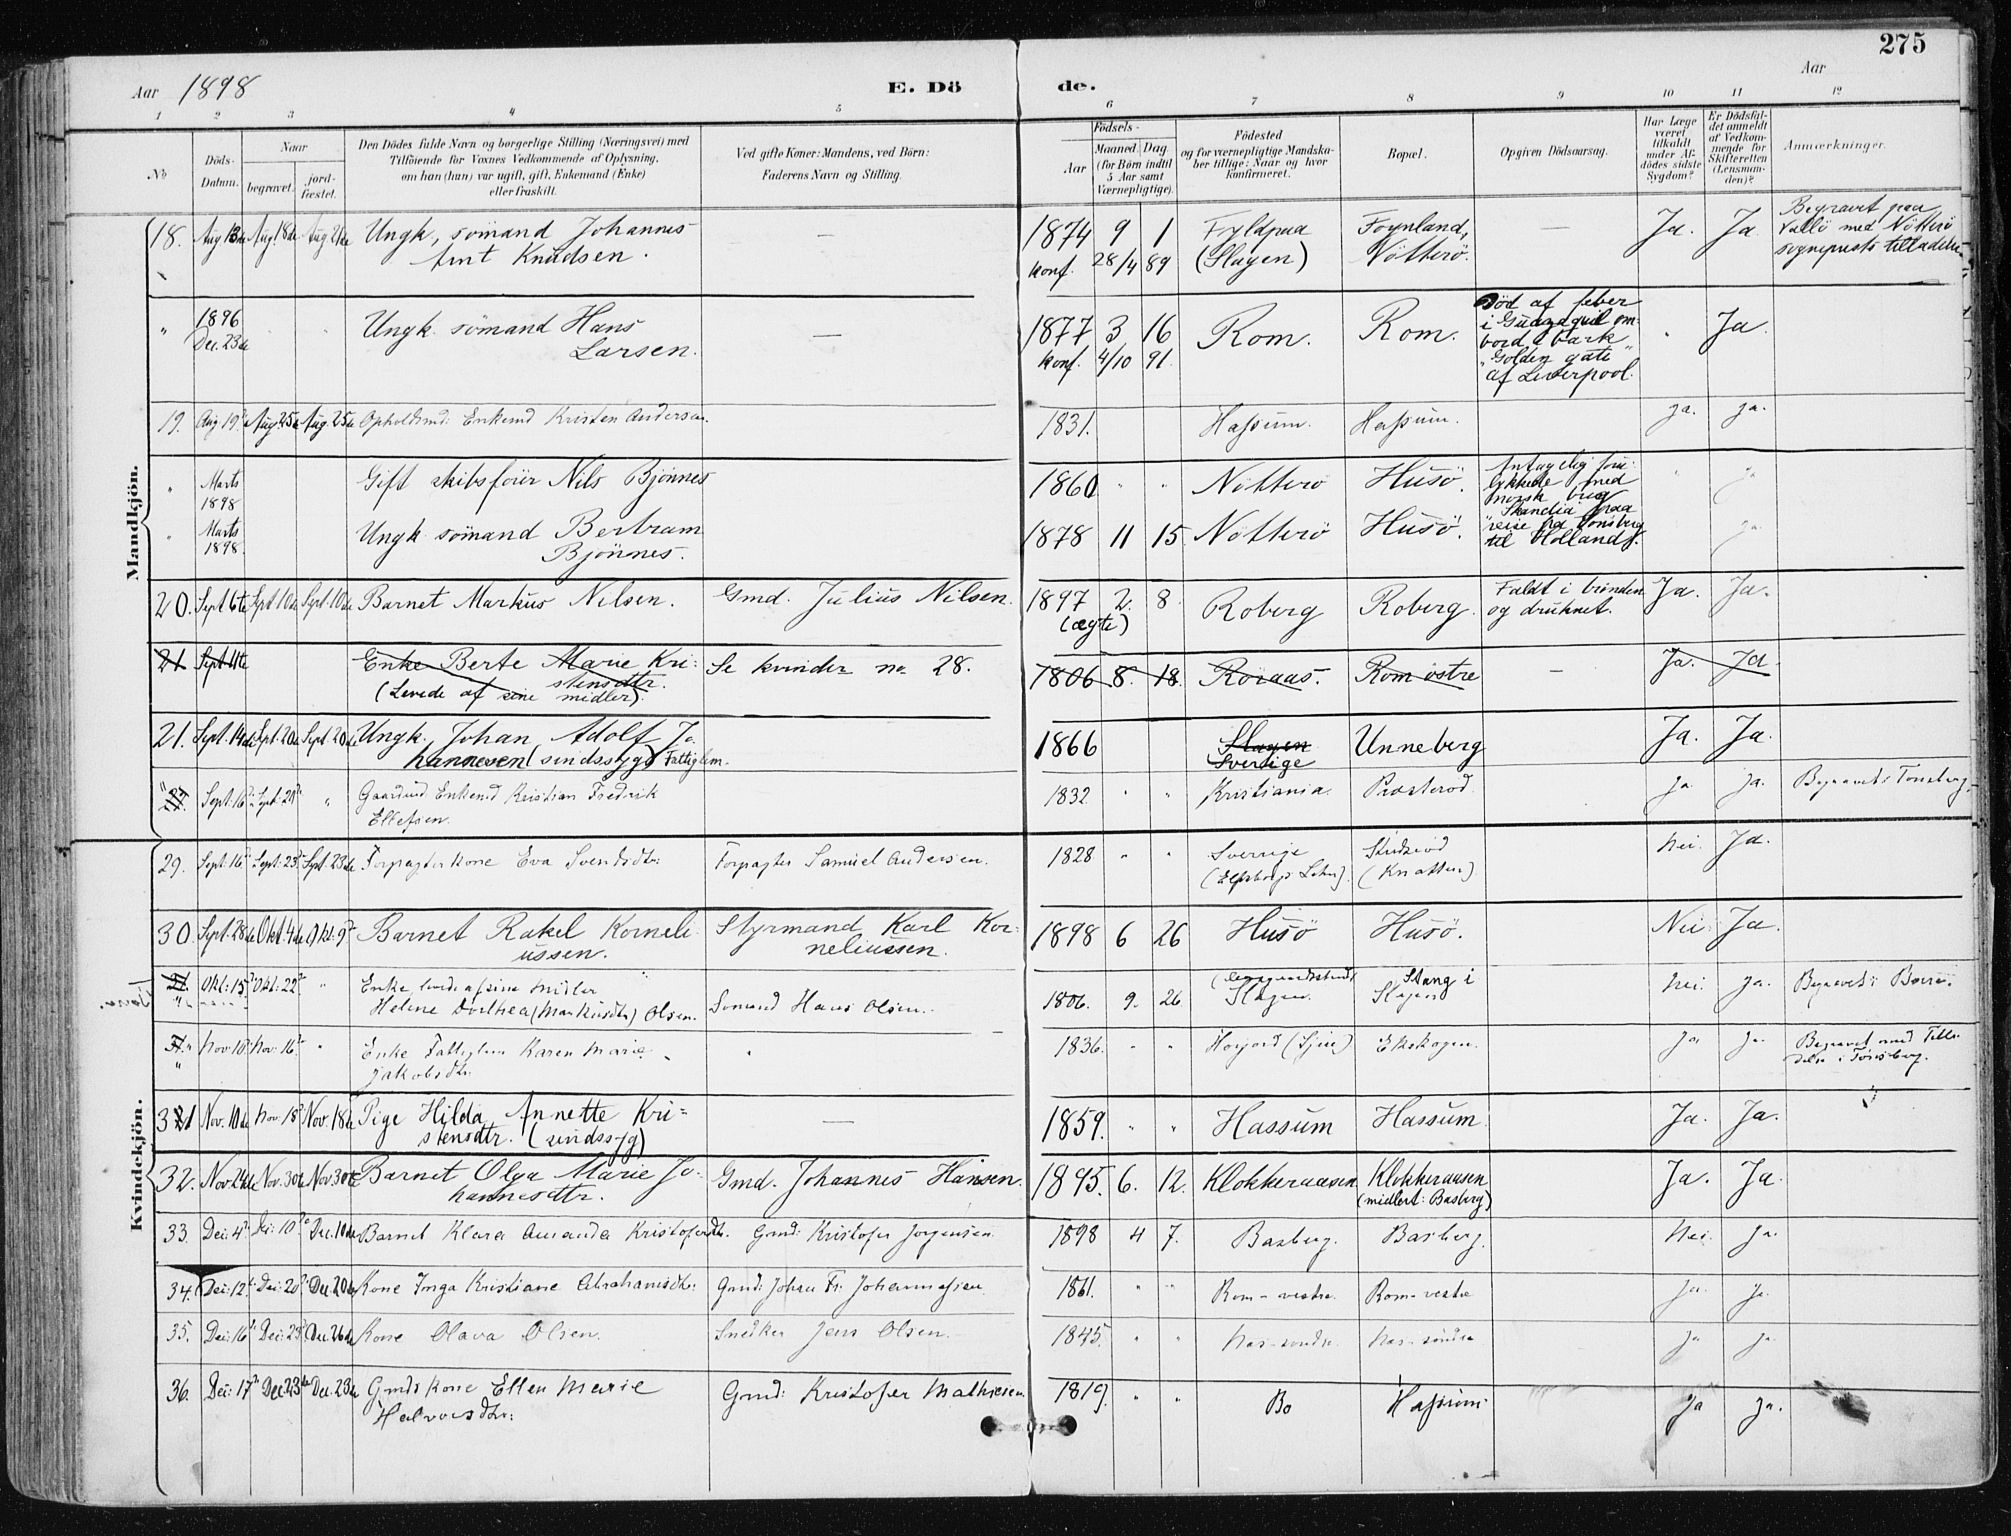 275
Aar 1898
E. Döde.
Aar
1 2 3 4 5 6 7 8 9 10 11 12
No
Döds-Datum.
Naar
begravet.
jord-fæstet.
Den Dödes fulde Navn og borgerlige Stilling (Næringsvei) med
Tilföiende for Voxnes Vedkommende af Oplysning,
om han (hun) var ugift, gift, Enkemand (Enke)
eller fraskilt.
Ved gifte Koner: Mandens, ved Börn:
Faderens Navn og Stilling.
Födsels-
Aar
Maaned. Dag
(for Börn indtil
5 Aar samt
Værnepligtige).
Födested
og for værnepligtige Mandska-
ber tillige: Naar og hvor
konfirmeret.
Bopæl.
Opgiven Dödsaarsag.
Har Læge
været
tilkaldt
under Af-
dödes sidste
Sygdom?
Er Dödsfal-
det anmeldt
af Vedkom-
mende for
Skifteretten
(Lensman-
den)?
Anmærkninger.
Mandkjön.
18. Aug 13de Aug 18de Aug 21de Ungk., sömand Johannes — 1874 9 1 Fyldpaa Foynland, — Ja. Ja Begravet paa
Amt Knudsen. konf. 28/4 89 (Slagen) Nötterö. Vallö med Nötterö
sogneprests tilladelse
" 1896 " Ungk. sömand Hans — 1877 3 16 Rom. Rom. Död af feber
Dec. 23de Larsen. konf. 4/10 91. i Guayaquil om-
bord i bark
"Golden gate"
af Liverpool. " Ja.
19. Aug 19de Aug. 25de Aug. 25de Opholdsmd: Enkemd Kristen Andersen. 1831. Hassum. Hassum. ja. ja.
" Marts 1898 Gift skibsförer Nils Bjönnes 1860 " " Nötterö Husö. Antagelig for-
lykkede med
norsk brig
" Marts 1898. Ungk sömand Bertram 1878 11 15 Nötterö Husö. "Skandia" paa
Bjönnes. reise fra Tönsberg
til Holland. " ja.
20. Sept 6te Sept 10de Sept. 10de Barnet Markus Nilsen. Gmd. Julius Nilsen. 1897 2. 8. Roberg Roberg. Faldt i brönden Ja. Ja.
(ægte) og druknet.
21 Sept 11te Enke Berte Marie Kri- Se kvinder no 28. 1806 8. 18. Röraas. Rom östre — Ja. Ja
stensdtr.
(Levede af sine midler).
21. Sept. 14de Sept. 20de Sept. 20de Ungk. Johan Adolf Jo- 1866 Slagen Unneberg Ja. Ja.
hannesen (sindssyg) Fattiglem. Sverige
" Sept. 16de Sept. 21de " Gaardmd Enkemd Kristian Fredrik 1832 " " Kristiania. Presterod. ja ja. Begravet i Tönsberg.
Ellefsen.
Kvindekjön.
29. Sept. 16de Sept. 23de Sept. 23de Forpagterkone Eva Svendsdtr. Forpagter Samuel Andersen. 1828 " " Sverrige Nei. Ja.
(Elfsborgs Lehn). (Knatten)
30. Sept. 28de Okt. 4de Okt. 9de Barnet Rakel Korneli- Styrmand Karl Kor- 1898 6 26 Husö Husö. Nei. Ja.
ussen. neliussen.
31. Okt. 15de Okt. 22de " Enke, levede af sine midler Slagen. Stang i nei. ja. Begravet i Borre.
Helene Dorthea (Markusdtr) Olsen. Sömand Hans Olsen. 1806. 9. 26 Slagen
31. Nov. 10de Nov. 16de " Enke Fattiglem Karen Marie " 1836. " " Hovjord (Sjue) Ekeskogen. ja ja. Begravet med Tilla-
Jakobsdtr. delse i Tönsberg.
31 Nov. 10de Nov. 18de Nov. 18de Pige Hilda Annette Kri- — 1859. " " Hassum Hassum. Ja. Ja.
stensdtr. (sindssyg)
32. Nov. 24de Nov. 30te Nov. 30te Barnet Olga Marie Jo- Gmd. Johannes Hansen. 1895. 6. 12. Klokkeraasen Klokkeraasen Ja. Ja.
hannesdtr. (midlert: Basberg)
33. Dec: 4de Dec: 10de Dec. 10de Barnet Klara Amanda Kristofersdtr. Gmd: Kristofer Jorgensen. 1898 4 7. Basberg. Basberg. Nei. ja.
34. Dec: 12te Dec: 20de Dec. 20de Kone Inga Kristiane Abrahamsdtr: Gmd: Johan Fr. Johannessen. 1861. " " Rom-vestre. Rom-vestre ja. ja.
35. Dec: 16de Dec: 23de Dec. 26de Kone Olava Olsen. Snedker Jens Olsen. 1845. " " Nes-sondre. Nes-söndre ja ja.
36. Dec: 17de Dec. 23de Dec. 23de Gmds kone Ellen Marie Gmd: Kristofer Mathiesen 1819. " " Bo Hassum ja ja.
Halvorsdtr: